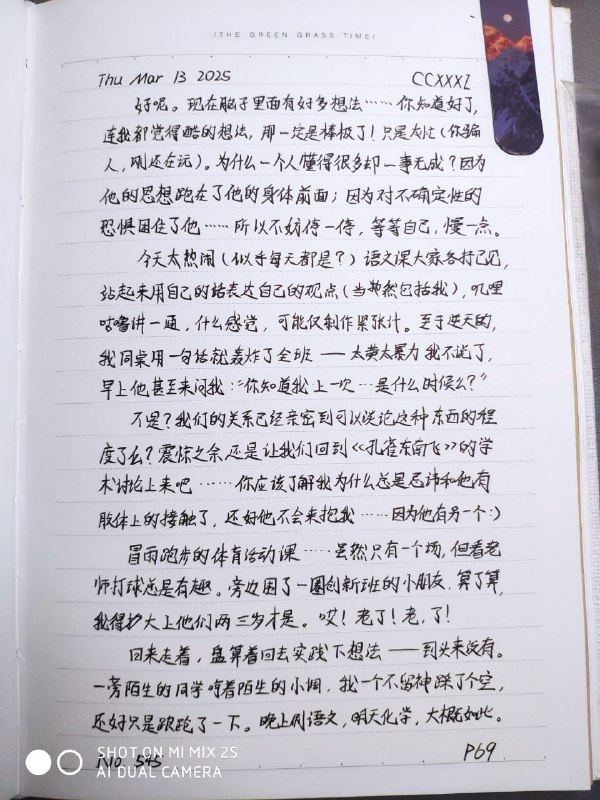 /THE GREEN GRASS TIME/
Thu Mar 13 2025 CCXXXI
好呢。现在脑子里面有好多想法……你知道好了,
连我都觉得酷的想法,那一定是棒极了!只是太忙(你骗
人,刚还在玩)。为什么一个人懂得很多却一事无成?因为
他的思想跑在了他的身体前面;因为对不确定性的
恐惧困住了他……所以不妨停一停,等等自己,慢一点。
今天太热闹(似乎每天都是?)语文课大家各抒己见,
站起来用自己的话表达自己的观点(当然包括我),叽里
咕噜讲一通,什么感觉,可能仅制作紧张汁。至于逆天的,
我同桌用一句话就轰炸了全班——太黄太暴力我不说了,
早上他甚至来问我:“你知道我上一次…是什么时候么?”
不是?我们的关系已经亲密到可以谈论这种东西的程
度了么?震惊之余还是让我们回到《孔雀东南飞》的学
术讨论上来吧……你应该了解我为什么总是忌讳和他有
肢体上的接触了,还好他不会来抱我……因为他有另一个:)
冒雨跑步的体育活动课……虽然只有一个场,但看老
师打球总是有趣。旁边围了一圈创新班的小朋友,算了算,
我得扩大上他们两三岁才是。哎!老了!老,了!
回来走着,盘算着回去实践下想法——到头来没有。
一旁陌生的同学哼着陌生的小调,我一个不留神踩了个空,
还好只是踉跄了一下。晚上例语文,明天化学,大概如此。
No. 545 P69
SHOT ON MI MIX 2S
AI DUAL CAMERA